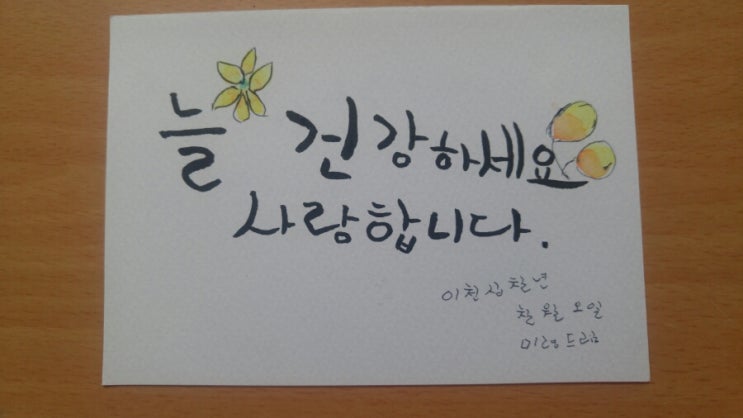 늘 건강하세요
사랑합니다.
이천십칠년
칠월 오일
미령 드림